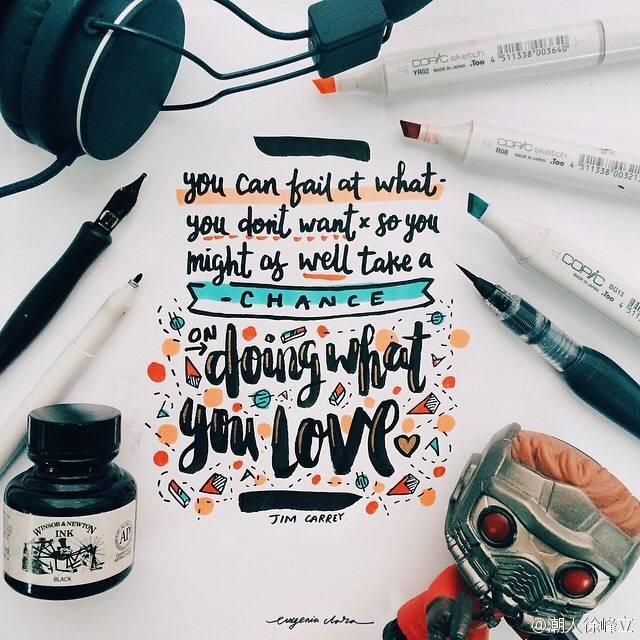 COPIC sketch
YR02 MADE IN JAPAN .Too 4 511338 003640
COPIC sketch
R08 MADE IN JAPAN .Too
COPIC
BG13
you can fail at what
you don't want x so you
might as well take a
-CHANCE
ON
doing what
you LOVE
JIM CARREY
WINSOR & NEWTON
INK
BLACK
eugenia clara
@潮人徐峰立